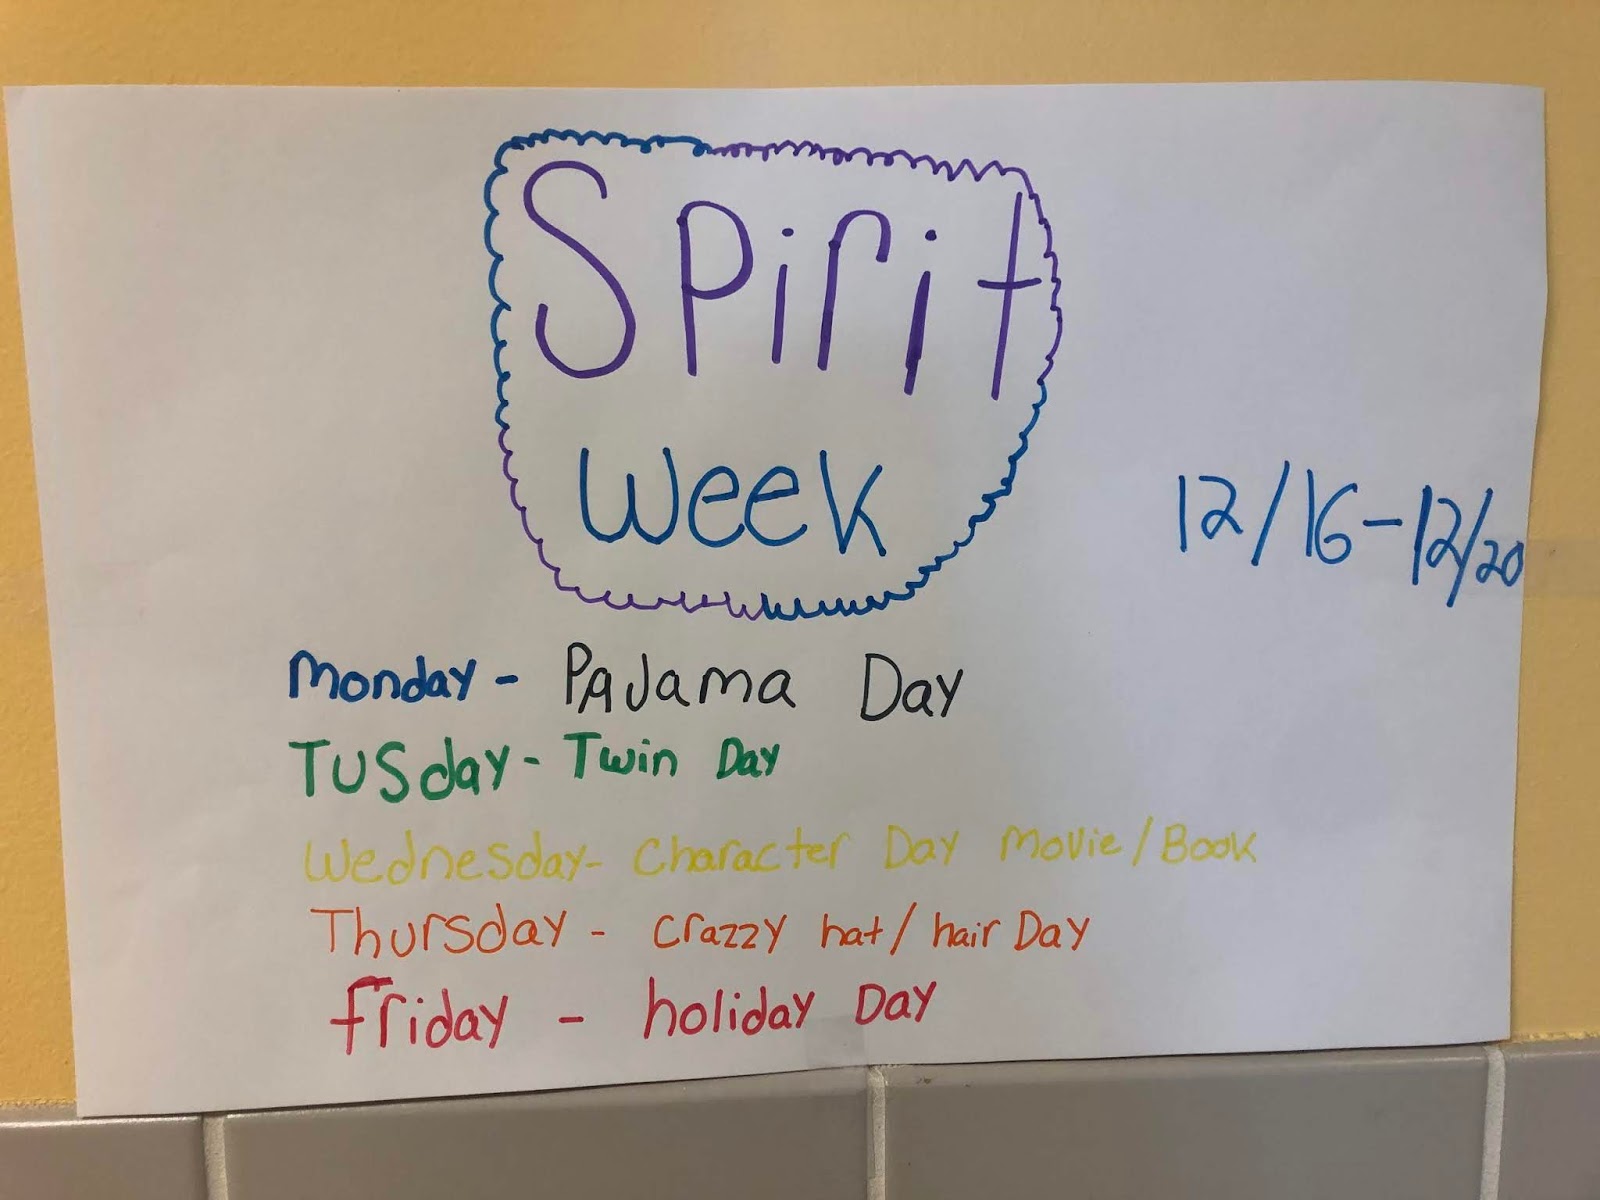 Spirit
week
12/16-12/20
Monday - PAJama Day
TUSday - Twin Day
Wednesday - Character Day Movie/Book
Thursday - crazzy hat/hair Day
friday - holiday Day